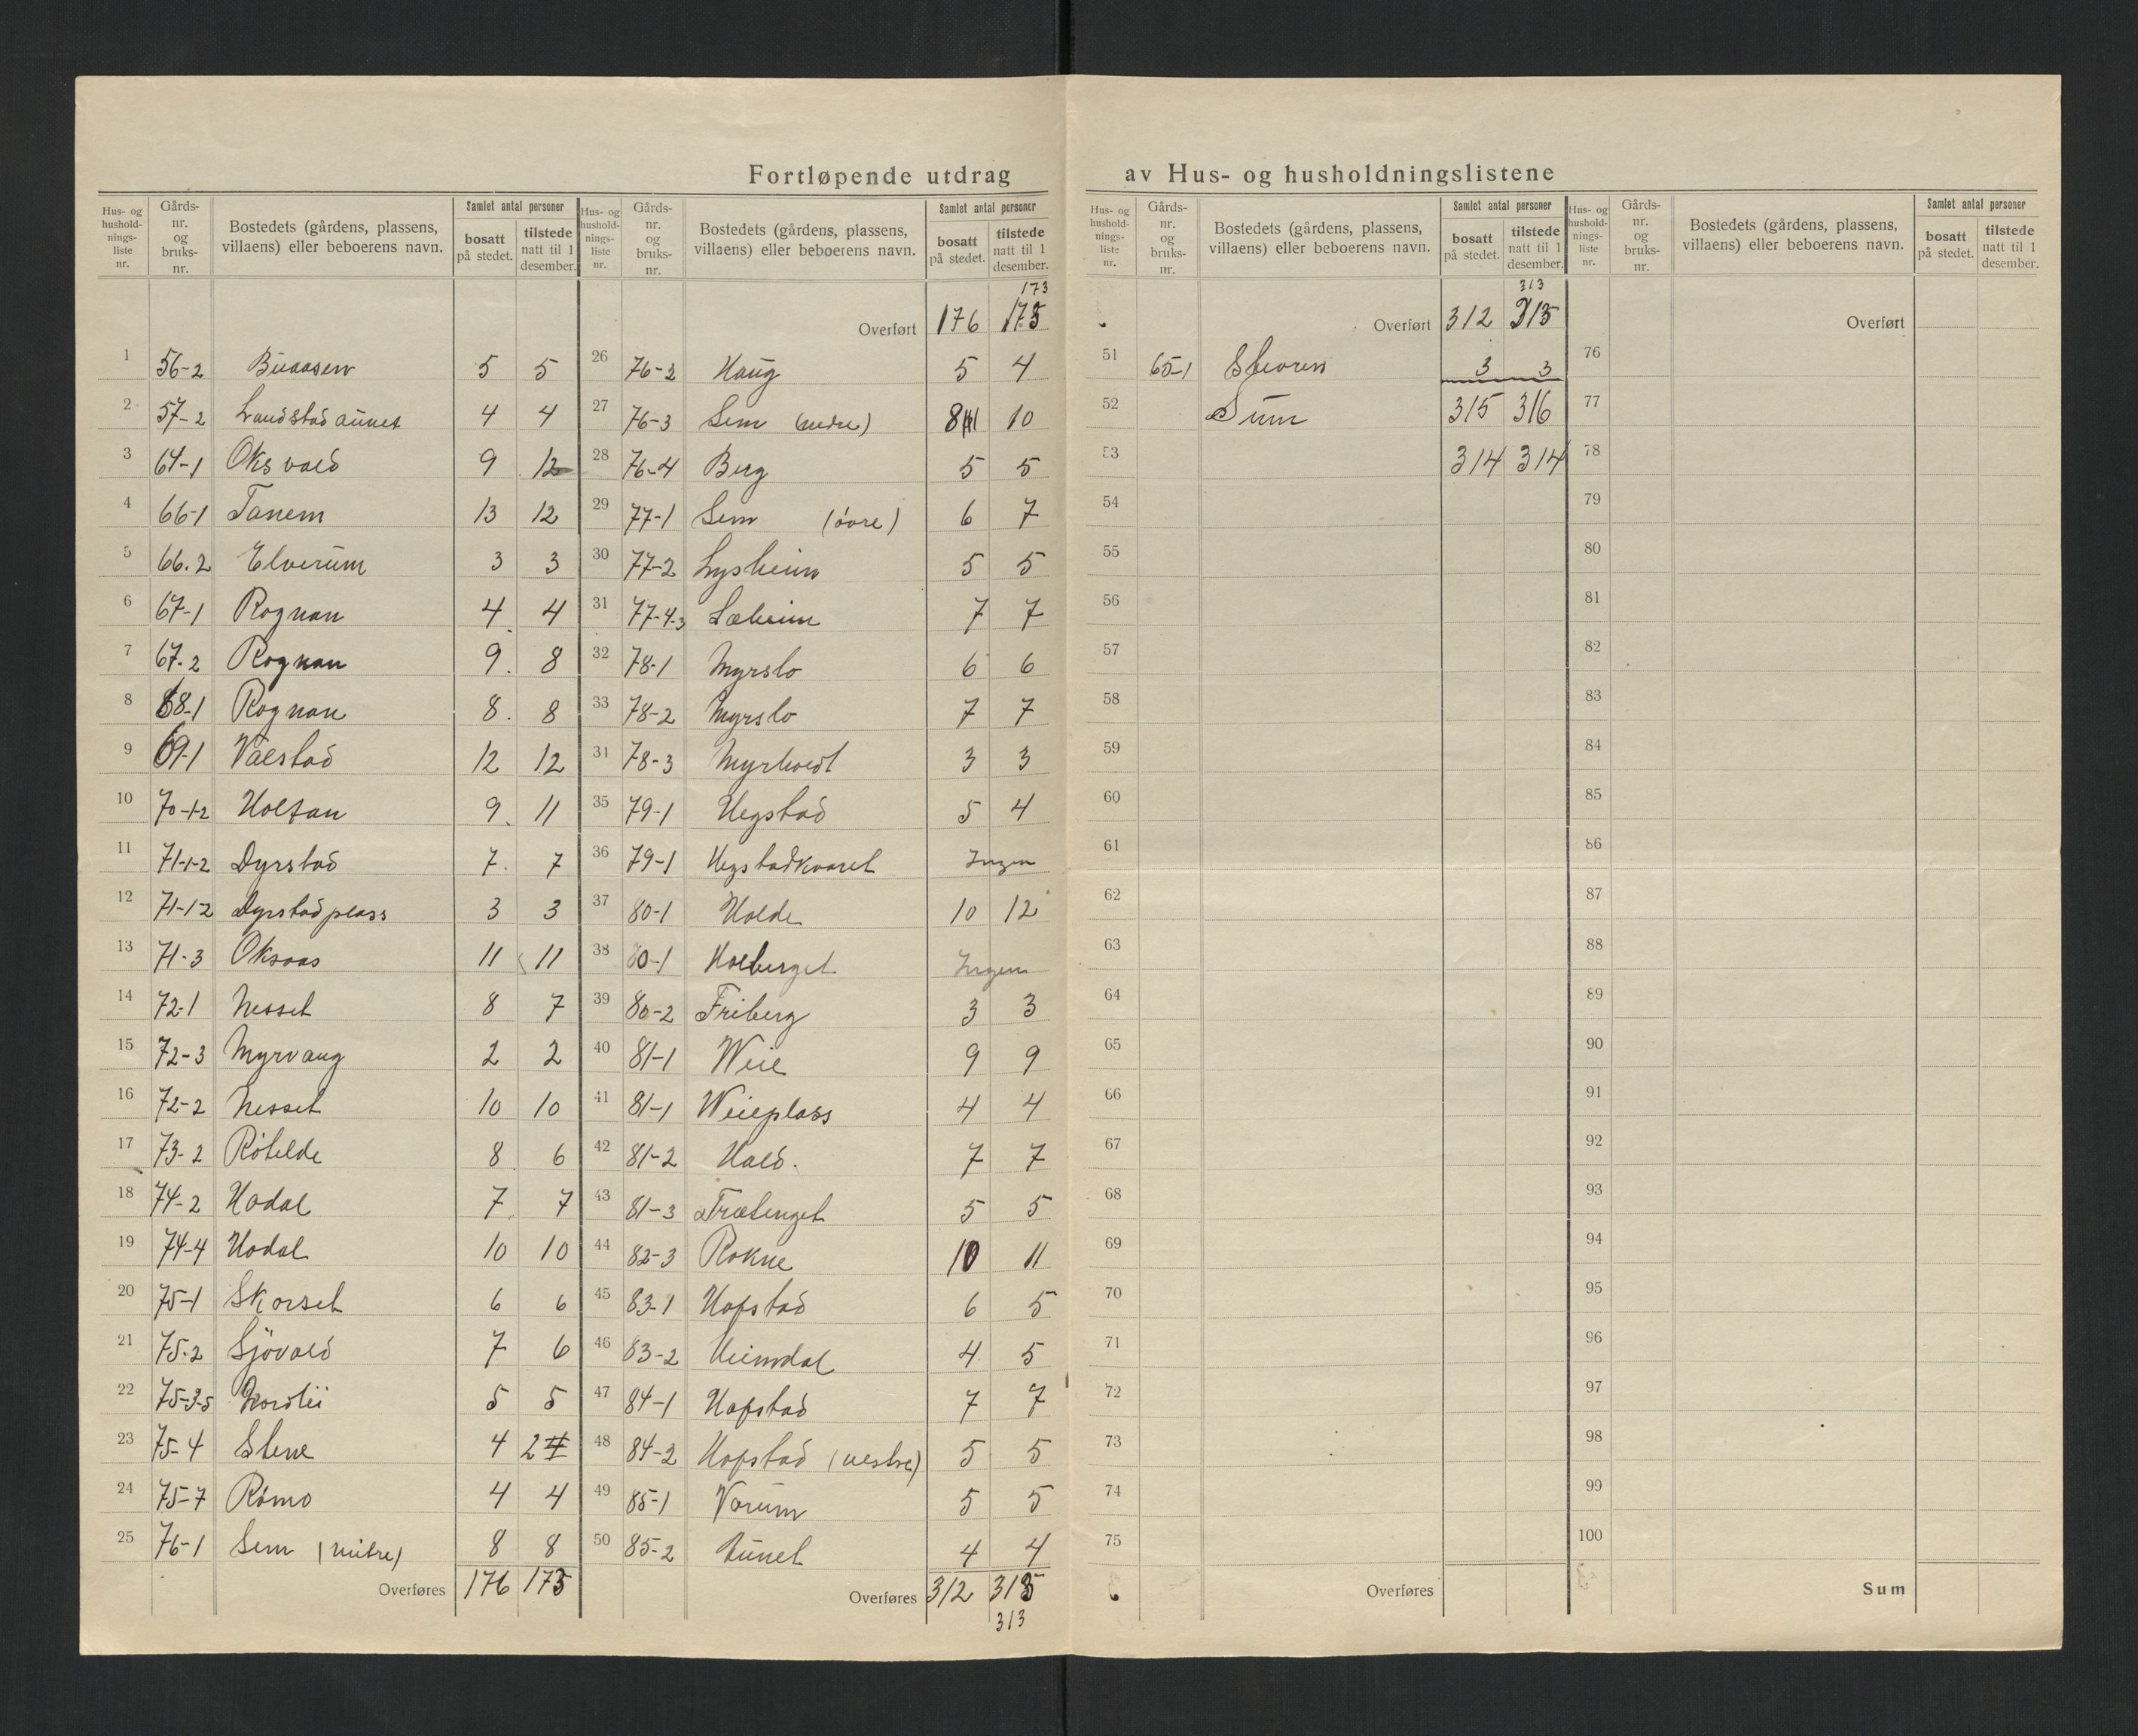 Fortløpende utdrag av Hus- og husholdningslistene
Hus- og hushold-nings-liste nr. | Gårds-nr. og bruks-nr. | Bostedets (gårdens, plassens, villaens) eller beboerens navn. | Samlet antal personer | bosatt på stedet. | tilstede natt til 1 desember.
1 56-2 Buaasen 5 5
2 57-2 Landstadaunet 4 4
3 64-1 Oksvold 9 12
4 66-1 Tanem 13 12
5 66.2 Elverum 3 3
6 67-1 Rognan 4 4
7 67-2 Rognan 9 8
8 68-1 Rognan 8 8
9 69-1 Valstad 12 12
10 70-1-2 Holtan 9 11
11 71-1-2 Dyrstad 7 7
12 71-1-2 Dyrstadplass 3 3
13 71-3 Oksaas 11 11
14 72-1 Nesset 8 7
15 72-3 Myrvang 2 2
16 72-2 Nesset 10 10
17 73-2 Røtelde 8 6
18 74-2 Hodal 7 7
19 74-4 Hodal 10 10
20 75-1 Skorset 6 6
21 75-2 Sjövold 7 6
22 75-3-5 Nordlii 5 5
23 75-4 Stene 4 2
24 75-7 Römo 4 4
25 76-1 Sem (mitre) 8 8
Overføres 176 173
Hus- og hushold-nings-liste nr. | Gårds-nr. og bruks-nr. | Bostedets (gårdens, plassens, villaens) eller beboerens navn. | Samlet antal personer | bosatt på stedet. | tilstede natt til 1 desember.
173
Overført 176 175
26 76-2 Haug 5 4
27 76-3 Sem (nedre) 8 10
28 76-4 Berg 5 5
29 77-1 Sem (övre) 6 7
30 77-2 Lysheim 5 5
31 77-4-3 Læheim 7 7
32 78-1 Myrslo 6 6
33 78-2 Myrslo 7 7
34 78-3 Myrholdt 3 3
35 79-1 Hegstad 5 4
36 79-1 Hegstadkvaret Ingen
37 80-1 Holde 10 12
38 80-1 Holberget Ingen
39 80-2 Friberg 3 3
40 81-1 Weie 9 9
41 81-1 Weieplass 4 4
42 81-2 Hald. 7 7
43 81-3 Trætenget 5 5
44 82-3 Rokne 10 11
45 83-1 Hofstad 6 5
46 83-2 Heimdal 4 5
47 84-1 Hofstad 7 7
48 84-2 Hofstad (vestre) 5 5
49 85-1 Vorum 5 5
50 85-2 Tunet 4 4
Overføres 312 315
313
Hus- og hushold-nings-liste nr. | Gårds-nr. og bruks-nr. | Bostedets (gårdens, plassens, villaens) eller beboerens navn. | Samlet antal personer | bosatt på stedet. | tilstede natt til 1 desember.
313
Overført 312 315
51 65-1 Storen 3 3
52 Sum 315 316
53 314 314
54
55
56
57
58
59
60
61
62
63
64
65
66
67
68
69
70
71
72
73
74
75
Overføres
Hus- og hushold-nings-liste nr. | Gårds-nr. og bruks-nr. | Bostedets (gårdens, plassens, villaens) eller beboerens navn. | Samlet antal personer | bosatt på stedet. | tilstede natt til 1 desember.
Overført
76
77
78
79
80
81
82
83
84
85
86
87
88
89
90
91
92
93
94
95
96
97
98
99
100
Sum